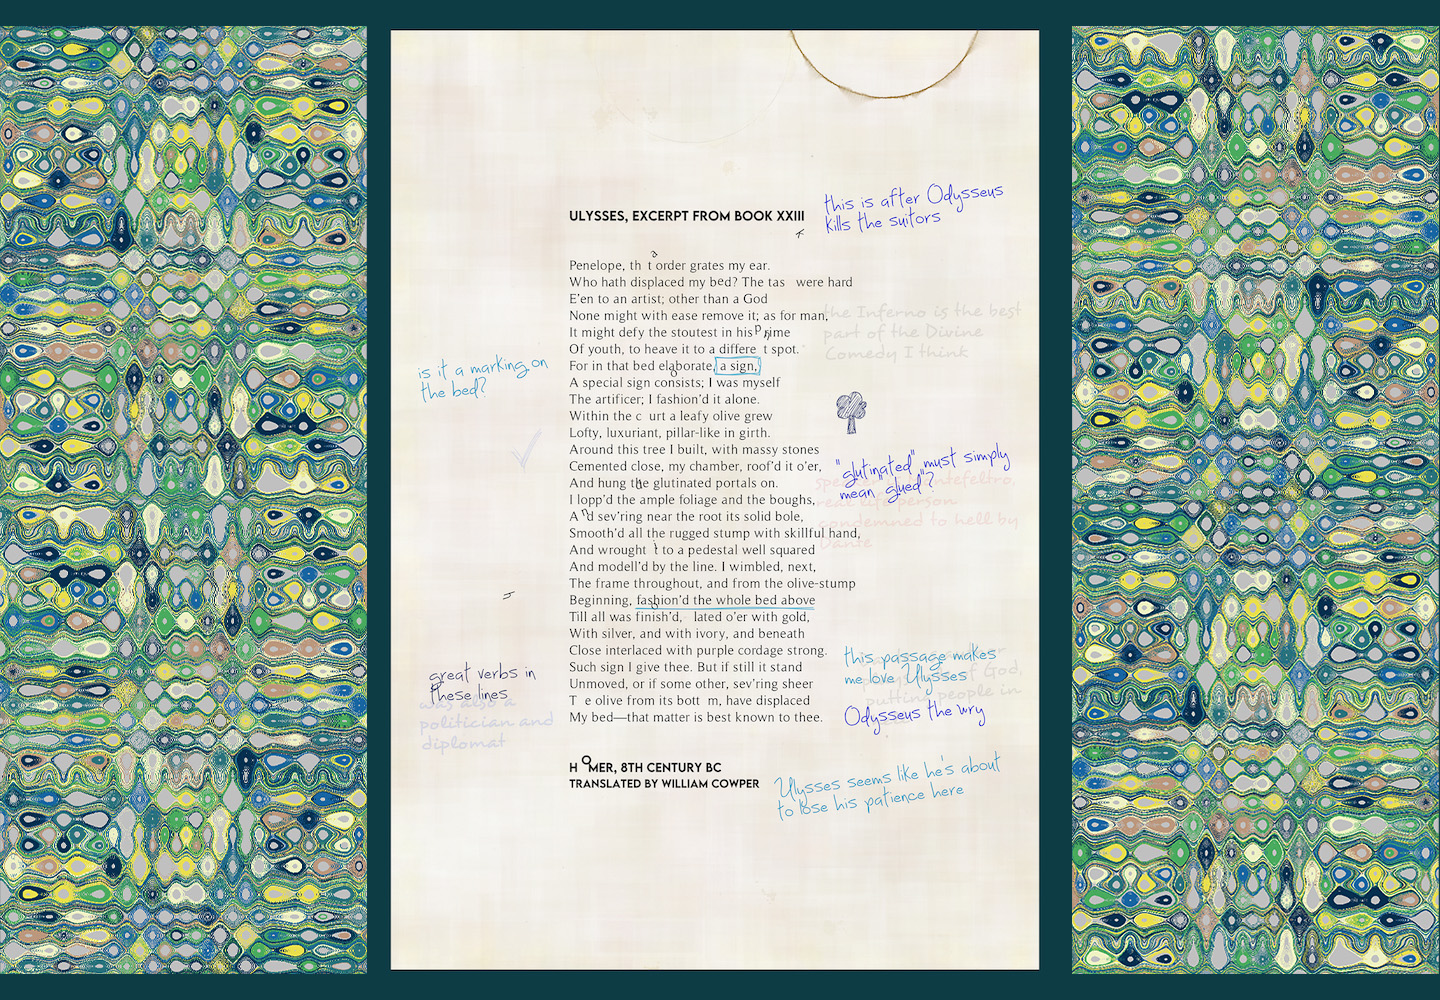 this is after Odysseus
kills the suitors
ULYSSES, EXCERPT FROM BOOK XXIII
Penelope, th t order grates my ear.
Who hath displaced my bed? The tas were hard
E'en to an artist; other than a God
None might with ease remove it; as for man,
It might defy the stoutest in his prime
Of youth, to heave it to a differe t spot.
For in that bed elaborate, a sign,
A special sign consists; I was myself
The artificer; I fashion'd it alone.
Within the c urt a leafy olive grew
Lofty, luxuriant, pillar-like in girth.
Around this tree I built, with massy stones
Cemented close, my chamber, roof'd it o'er,
And hung the glutinated portals on.
I lopp'd the ample foliage and the boughs,
And sev'ring near the root its solid bole,
Smooth'd all the rugged stump with skillful hand,
And wrought it to a pedestal well squared
And modell'd by the line. I wimbled, next,
The frame throughout, and from the olive-stump
Beginning, fashion'd the whole bed above
Till all was finish'd, lated o'er with gold,
With silver, and with ivory, and beneath
Close interlaced with purple cordage strong.
Such sign I give thee. But if still it stand
Unmoved, or if some other, sev'ring sheer
T e olive from its bott m, have displaced
My bed—that matter is best known to thee.
HOMER, 8TH CENTURY BC
TRANSLATED BY WILLIAM COWPER
the Inferno is the best
part of the Divine
Comedy I think
is it a marking on
the bed?
"glutinated" must simply
mean "glued"?
real life person
condemned to hell by
Dante
great verbs in
these lines
was also a
politician and
diplomat
this passage makes
me love Ulysses
of God,
putting people in
Odysseus the wry
Ulysses seems like he's about
to lose his patience here